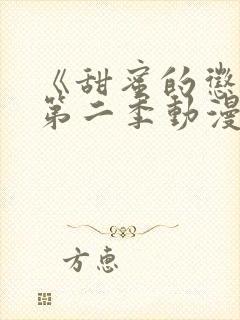 《甜蜜的懲
第二季動漫
方惠